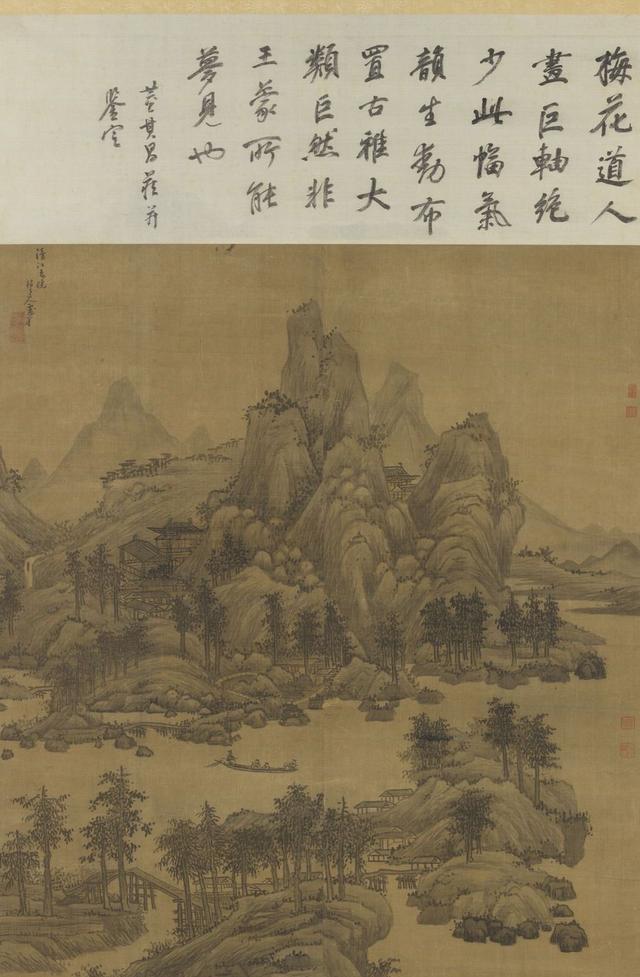 梅花道人
畫巨軸絕
少此幅氣
韻生動布
置古雅大
類巨然非
王蒙所能
夢見也
董其昌藏并
鑒定
清江春曉